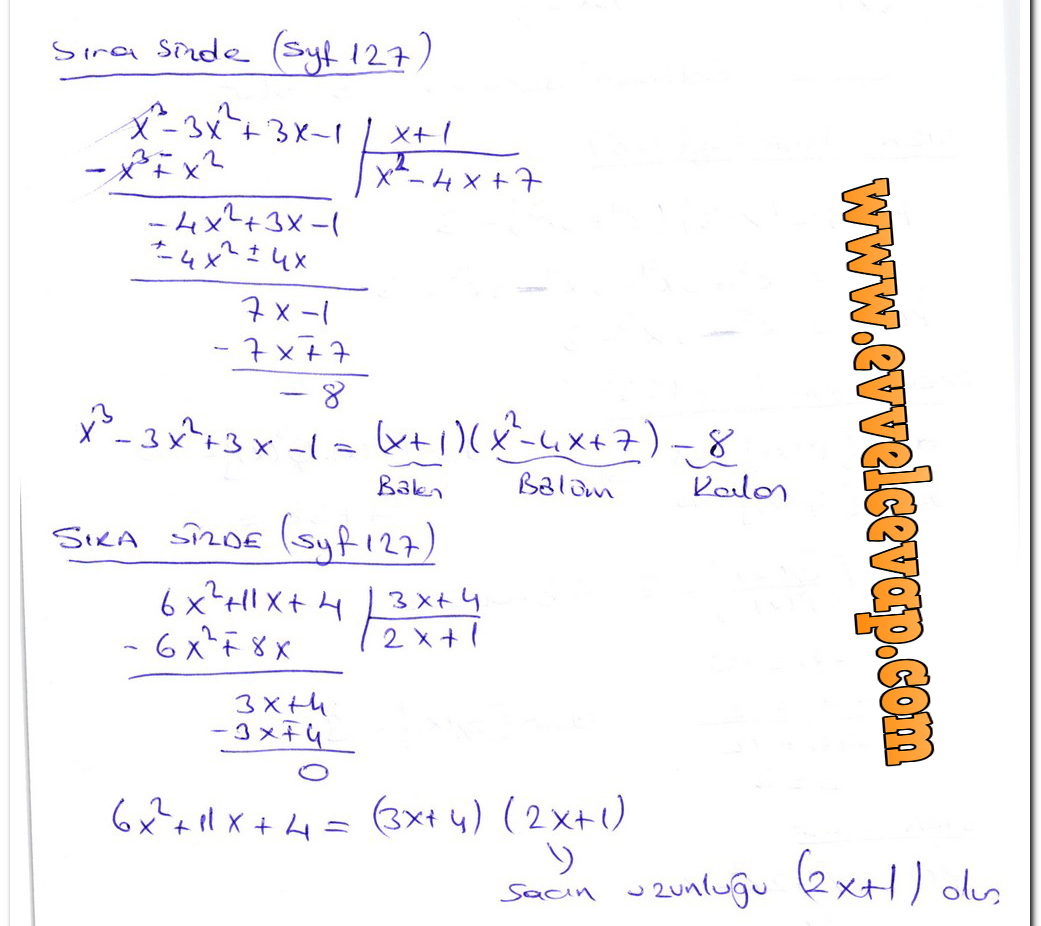 Sıra Sizde (Syf 127)
x³ - 3x² + 3x - 1 | x+1
- x³ ∓ x² | x² - 4x + 7
- 4x² + 3x - 1
± 4x² ± 4x
7x - 1
- 7x ∓ 7
- 8
x³ - 3x² + 3x - 1 = (x+1)(x² - 4x + 7) - 8
Bölen Bölüm Kalan
SIRA SİZDE (syf 127)
6x² + 11x + 4 | 3x+4
- 6x² ∓ 8x | 2x+1
3x+4
- 3x ∓ 4
0
6x² + 11x + 4 = (3x+4) (2x+1)
sacın uzunluğu (2x+1) olur
www.evvelcevap.com